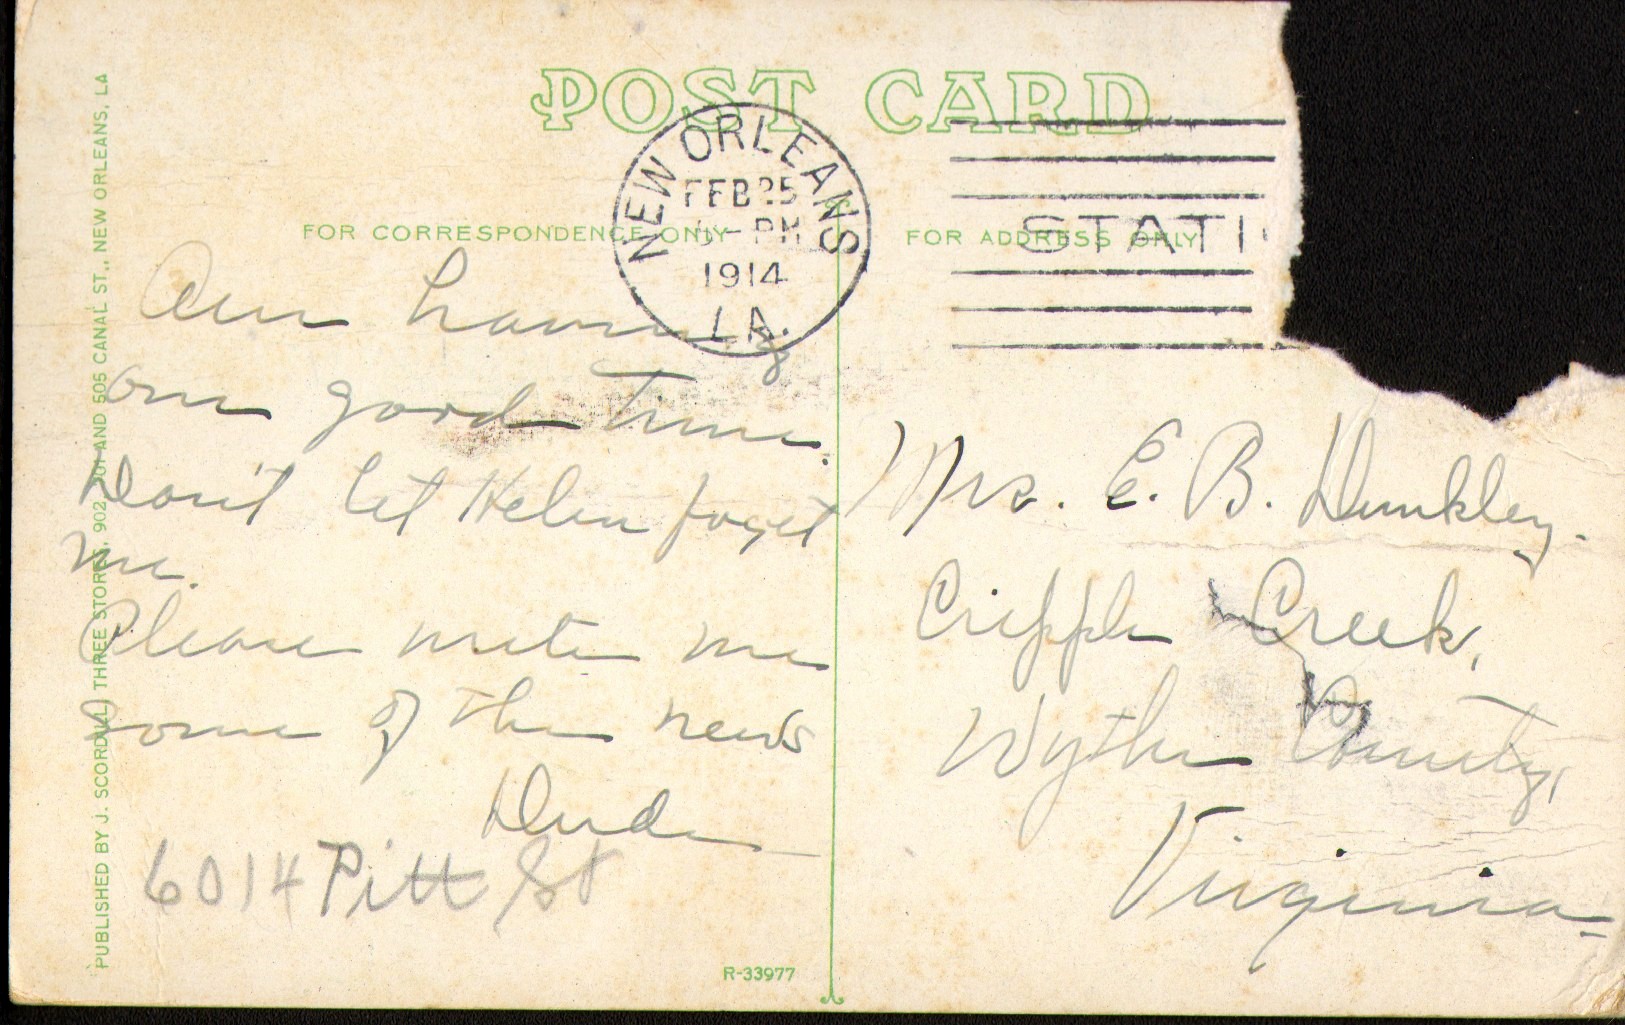 POST CARD
NEW ORLEANS
FEB 25
PM
1914
LA.
STATI
FOR CORRESPONDENCE ONLY
FOR ADDRESS ONLY
Am having
one good time.
Don't let Helen foget
me.
Please write me
some of the news
Dude
6014 Pitt St
Mrs. E. B. Dunkley.
Cripple Creek,
Wythe County,
Virginia
PUBLISHED BY J. SCORDILL THREE STORES, 902 AND 505 CANAL ST., NEW ORLEANS, LA
R-33977